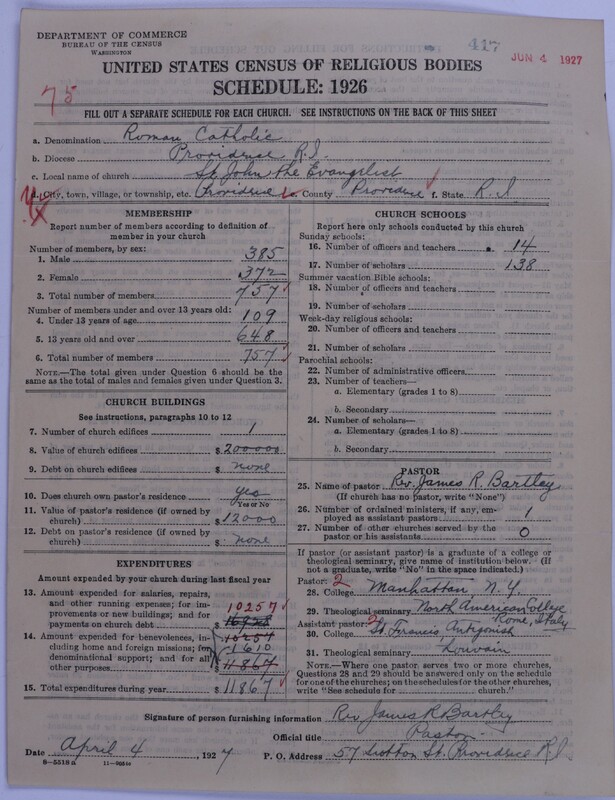 DEPARTMENT OF COMMERCE
BUREAU OF THE CENSUS
WASHINGTON
417
JUN 4 1927
UNITED STATES CENSUS OF RELIGIOUS BODIES
SCHEDULE: 1926
75
FILL OUT A SEPARATE SCHEDULE FOR EACH CHURCH. SEE INSTRUCTIONS ON THE BACK OF THIS SHEET
a. Denomination Roman Catholic
b. Diocese Providence R.I.
c. Local name of church St. John the Evangelist
d. City, town, village, or township, etc. Providence e. County Providence f. State R.I
MEMBERSHIP
Report number of members according to definition of member in your church
Number of members, by sex:
1. Male 385
2. Female 372
3. Total number of members 757
Number of members under and over 13 years old:
4. Under 13 years of age 109
5. 13 years old and over 648
6. Total number of members 757
NOTE.—The total given under Question 6 should be the same as the total of males and females given under Question 3.
CHURCH BUILDINGS
See instructions, paragraphs 10 to 12
7. Number of church edifices 1
8. Value of church edifices $ 200000
9. Debt on church edifices $ none
10. Does church own pastor's residence yes
Yes or No
11. Value of pastor's residence (if owned by church) $ 12000
12. Debt on pastor's residence (if owned by church) $ none
EXPENDITURES
Amount expended by your church during last fiscal year
13. Amount expended for salaries, repairs, and other running expenses; for improvements or new buildings; and for payments on church debt $ 10257
14. Amount expended for benevolences, including home and foreign missions; for denominational support; and for all other purposes 10257 1610 $ 11867
15. Total expenditures during year $ 11867
CHURCH SCHOOLS
Report here only schools conducted by this church
Sunday schools:
16. Number of officers and teachers 14
17. Number of scholars 138
Summer vacation Bible schools:
18. Number of officers and teachers
19. Number of scholars
Week-day religious schools:
20. Number of officers and teachers
21. Number of scholars
Parochial schools:
22. Number of administrative officers
23. Number of teachers—
a. Elementary (grades 1 to 8)
b. Secondary
24. Number of scholars—
a. Elementary (grades 1 to 8)
b. Secondary
PASTOR
25. Name of pastor Rev. James R. Bartley
(If church has no pastor, write "None")
26. Number of ordained ministers, if any, employed as assistant pastors 1
27. Number of other churches served by the pastor or his assistants 0
If pastor (or assistant pastor) is a graduate of a college or theological seminary, give name of institution below. (If not a graduate, write "No" in the space indicated.)
Pastor: 2
28. College Manhattan N.Y.
29. Theological seminary North American College Rome, Italy
Assistant pastor: 2
30. College St. Francis, Antigonish
31. Theological seminary Louvain
NOTE.—Where one pastor serves two or more churches, Questions 28 and 29 should be answered only on the schedule for one of the churches; on the schedules for the other churches, write "See schedule for church."
Signature of person furnishing information Rev James R Bartley
Official title Pastor
Date April 4, 1927 P. O. Address 57 St. Providence R.I.
8-5518 a